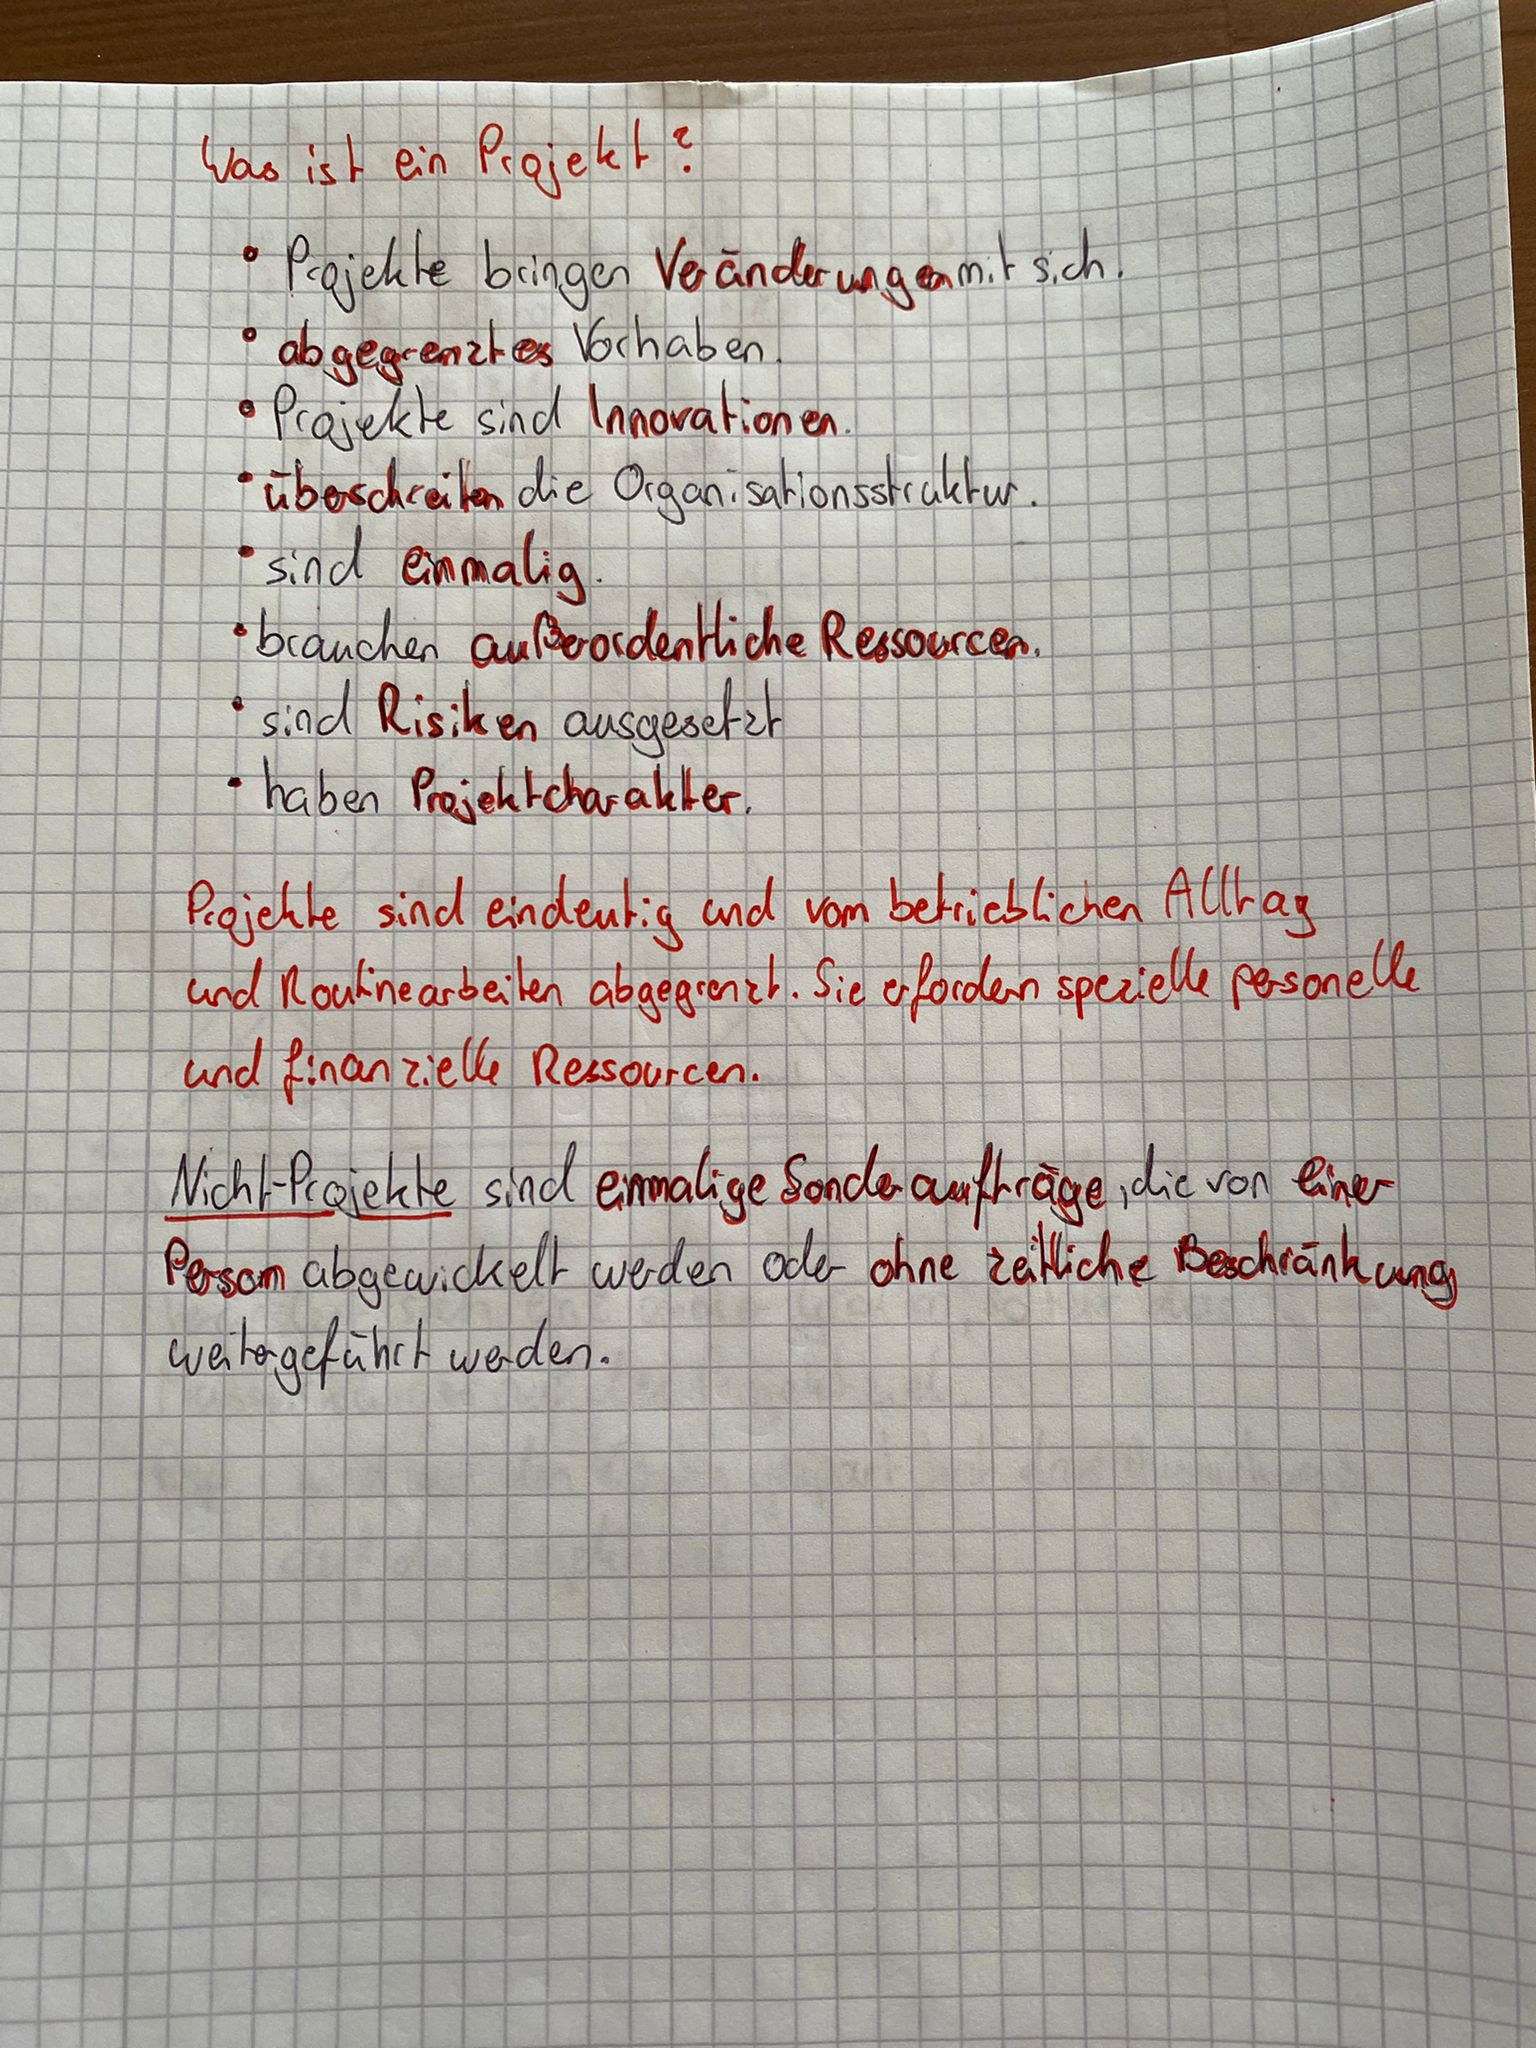 Was ist ein Projekt?
• Projekte bringen Veränderungen mit sich.
• abgegrenztes Vorhaben.
• Projekte sind Innovationen.
• überschreiten die Organisationsstruktur.
• sind einmalig.
• brauchen außerordentliche Ressourcen.
• sind Risiken ausgesetzt
• haben Projektcharakter.
Projekte sind eindeutig und vom betrieblichen Alltag
und Routinearbeiten abgegrenzt. Sie erfordern spezielle personelle
und finanzielle Ressourcen.
Nicht-Projekte sind einmalige Sonderaufträge, die von einer
Person abgewickelt werden oder ohne zeitliche Beschränkung
weitergeführt werden.